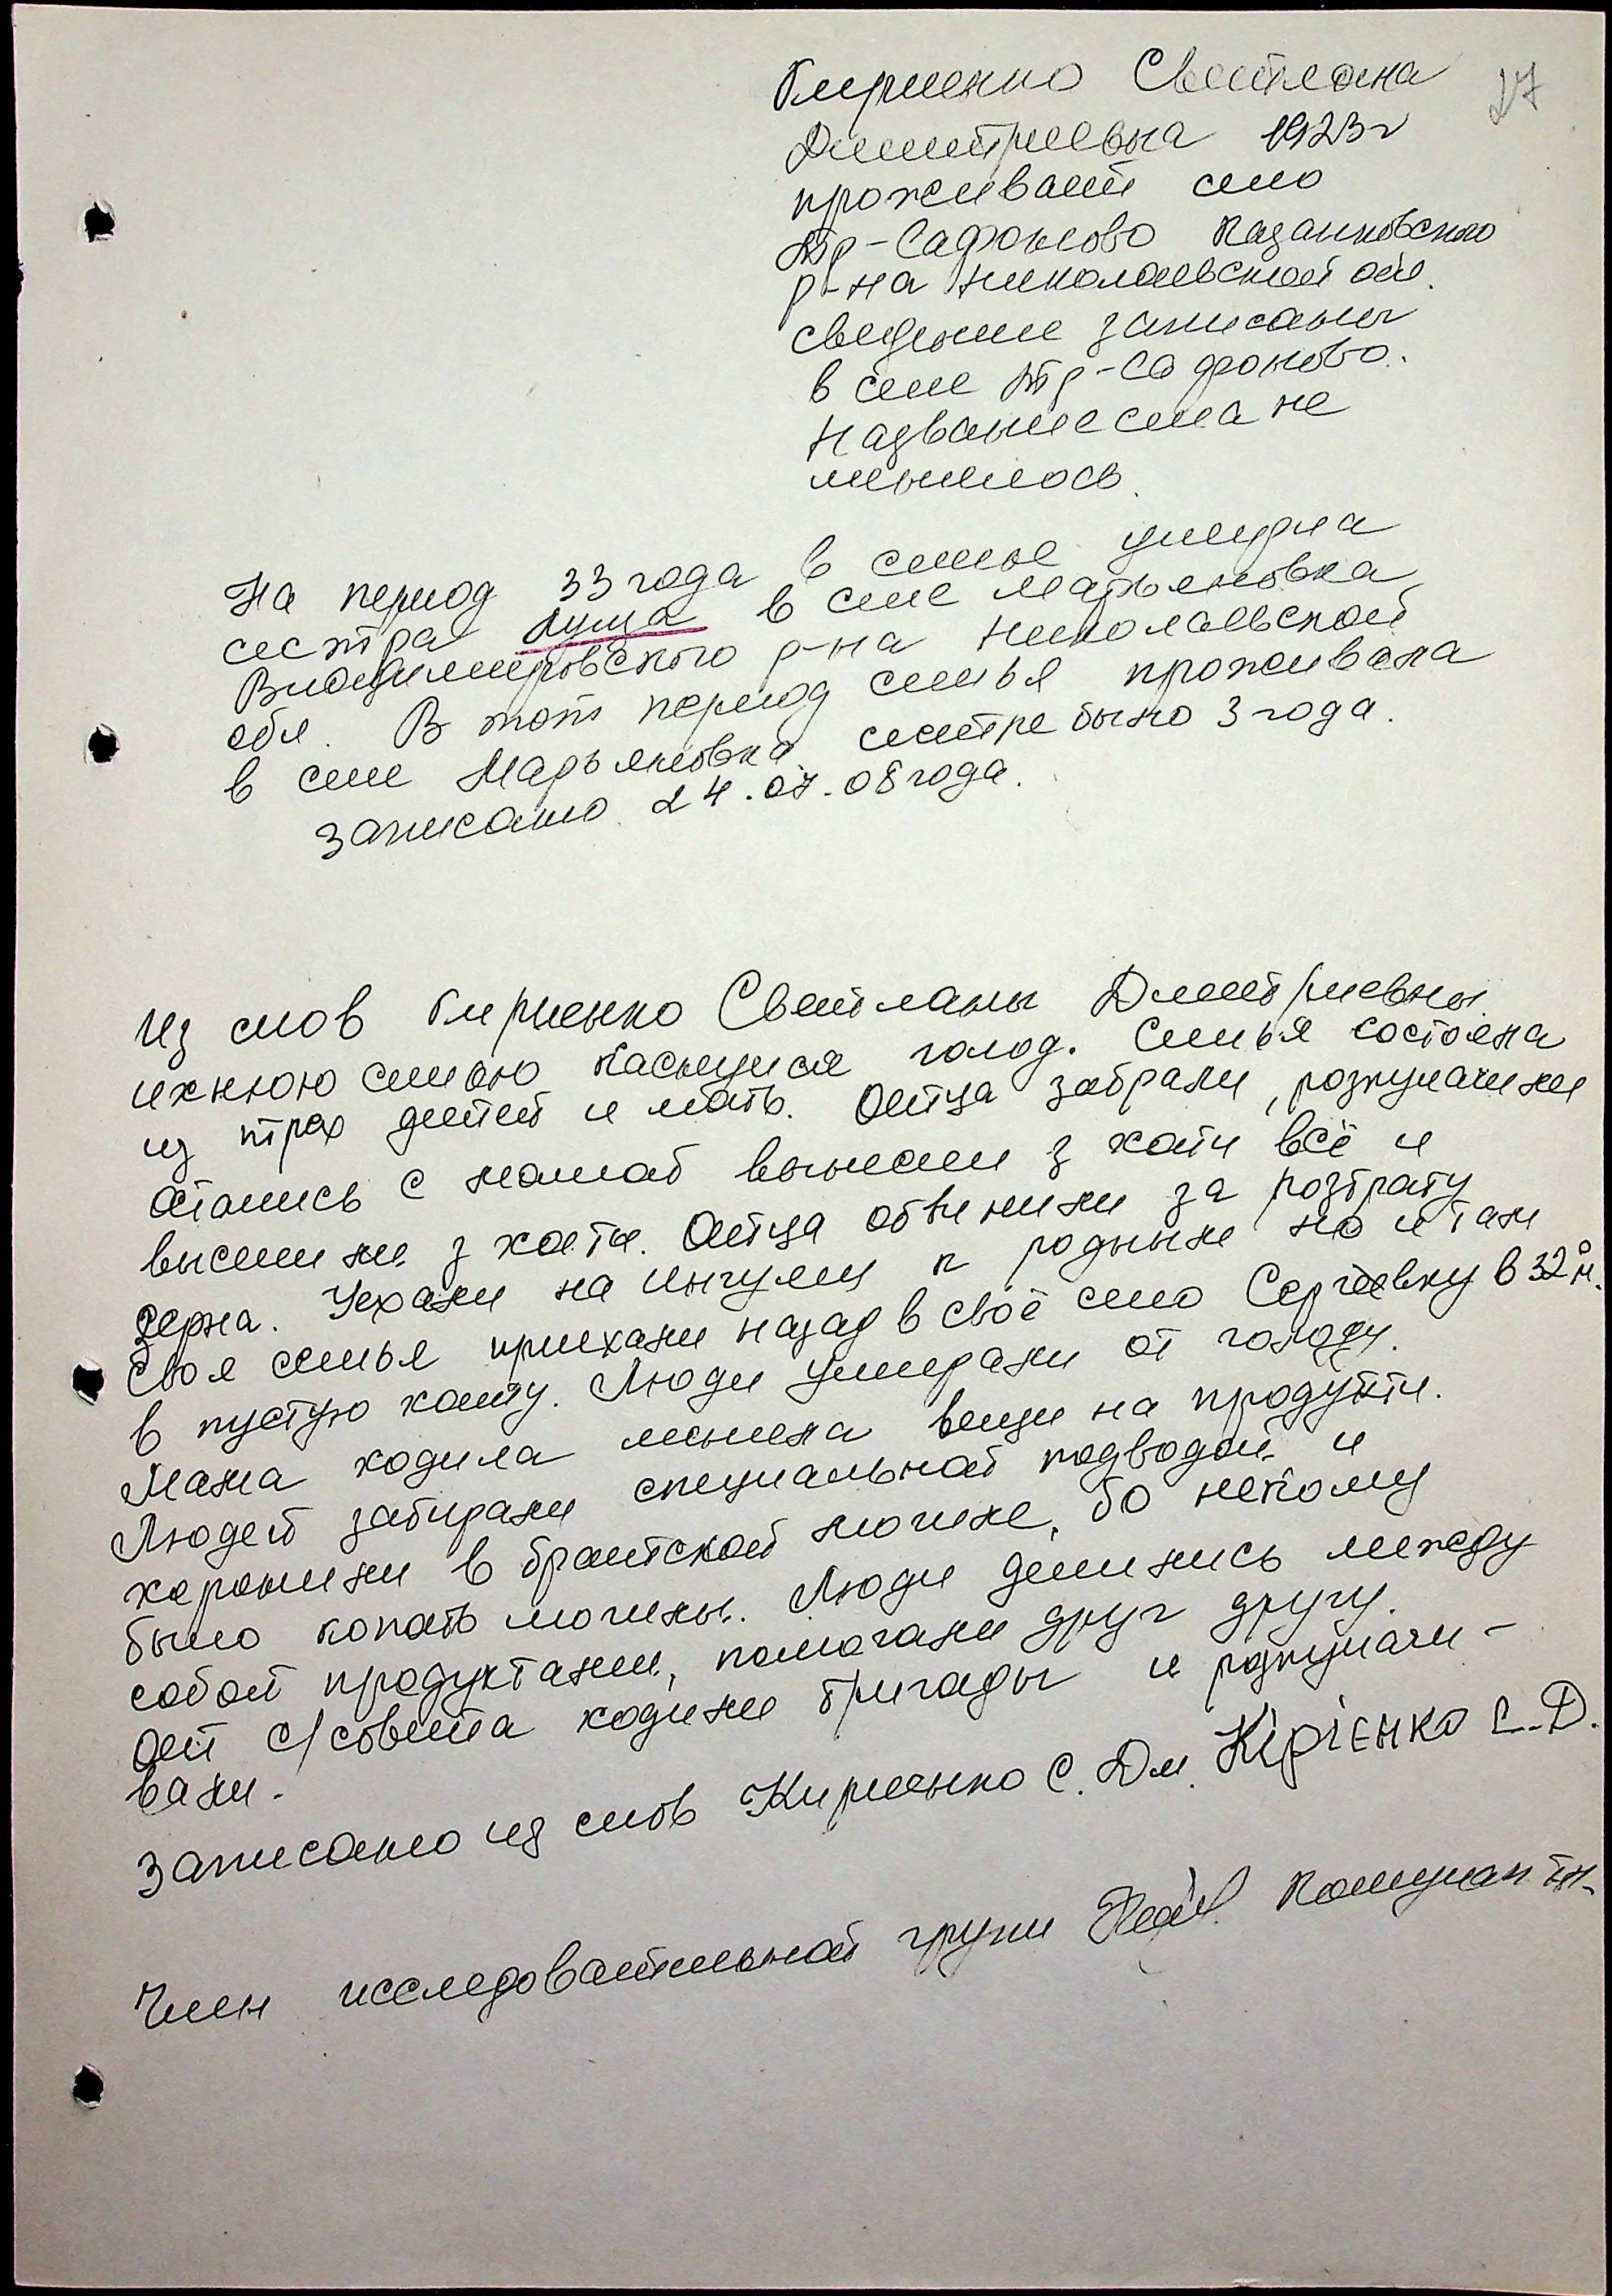 Кириенко Светлана
27
Дмитриевна 1923г
проживает село
Тр-Сафоново Казанковского
р-на Николаевской обл.
сведение записаны
в селе Тр-Сафоново.
Название села не
менялось.
На период 33 года в семье умерла
сестра Луша в селе Марьяновка
Владимировского р-на Николаевской
обл. В тот период семья проживала
в селе Марьяновка сестре было 3 года.
записано 24.07.08 года.
Из слов Кириенко Светланы Дмитриевны
ихнюю семью каснулся голод. Семья состояла
из трах детей и мать. Отца забрали, розкулачили
остались с мамой вынесли з хати всё и
выселили з хаты. Отца обвинили за розтрату
зерна. Уехали на Ингулец к родным но и там
своя семья приехали назад в своё село Сергеевку в 32ом.
в пустую хату. Люди умерали от голоду.
Мама ходила меняла вещи на продукти.
Людей забирали специальной подводой и
харонили в братской могиле, бо некому
было копать могилы. Люди делились между
собой продуктами, помогали друг другу.
От с/совета ходили бригады и розкулачи-
вали.
Записано из слов Кириенко С. Дм. Кірієнко С.Д.
Член исследовательной групи